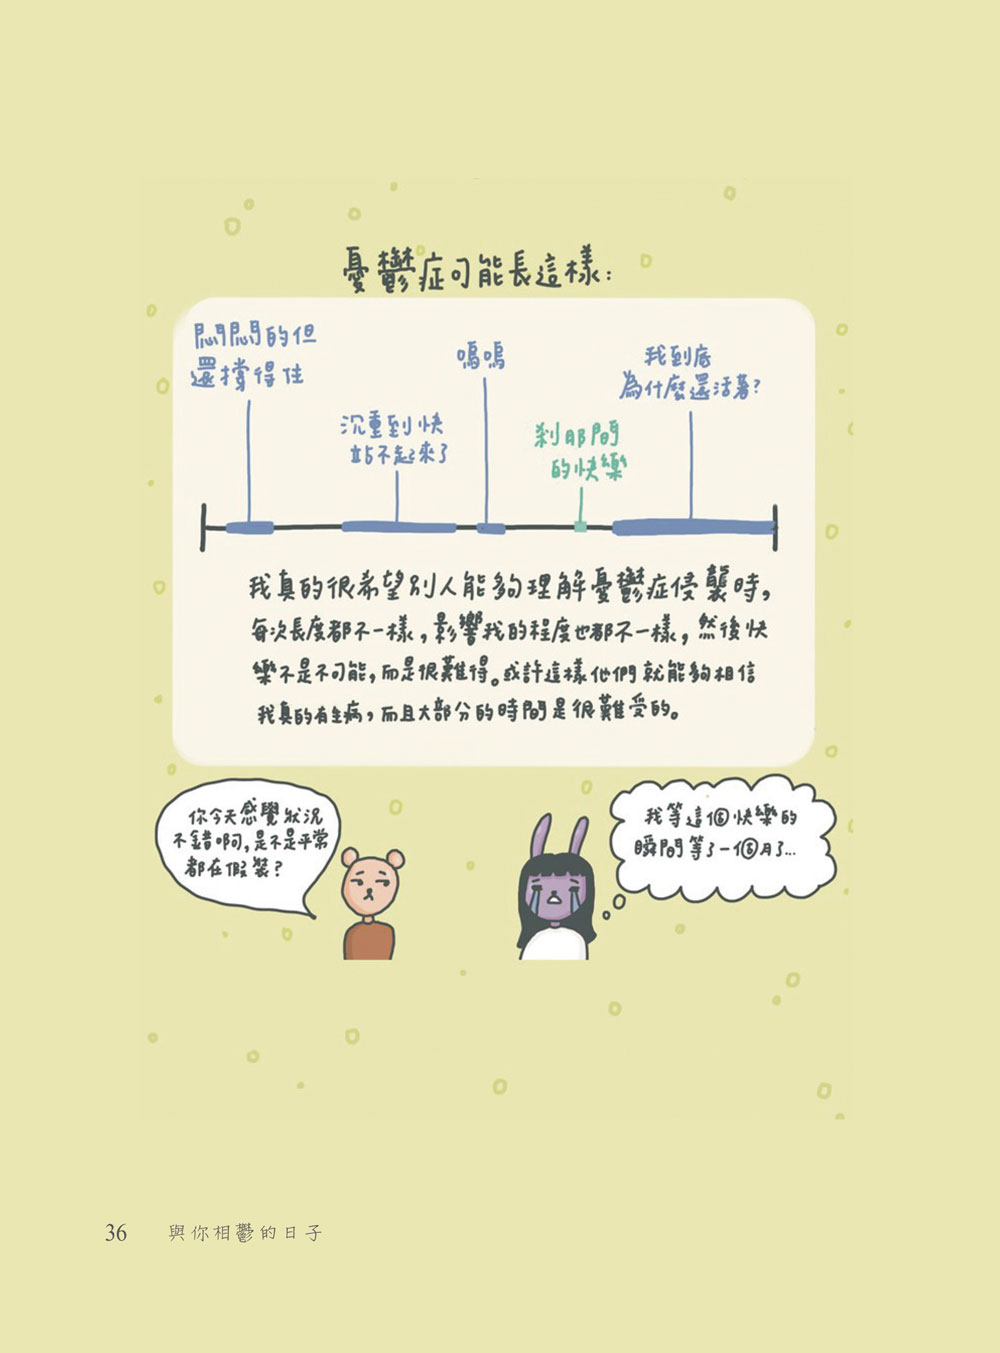 憂鬱症可能長這樣：
悶悶的但
還撐得住
沉重到快
站不起來了
嗚嗚
剎那間
的快樂
我到底
為什麼還活著？
我真的很希望別人能夠理解憂鬱症侵襲時，
每次長度都不一樣，影響我的程度也都不一樣，然後快
樂不是不可能，而是很難得。或許這樣他們就能夠相信
我真的有生病，而且大部分的時間是很難受的。
你今天感覺狀況
不錯啊，是不是平常
都在假裝？
我等這個快樂的
瞬間等了一個月了...
36 與你相鬱的日子